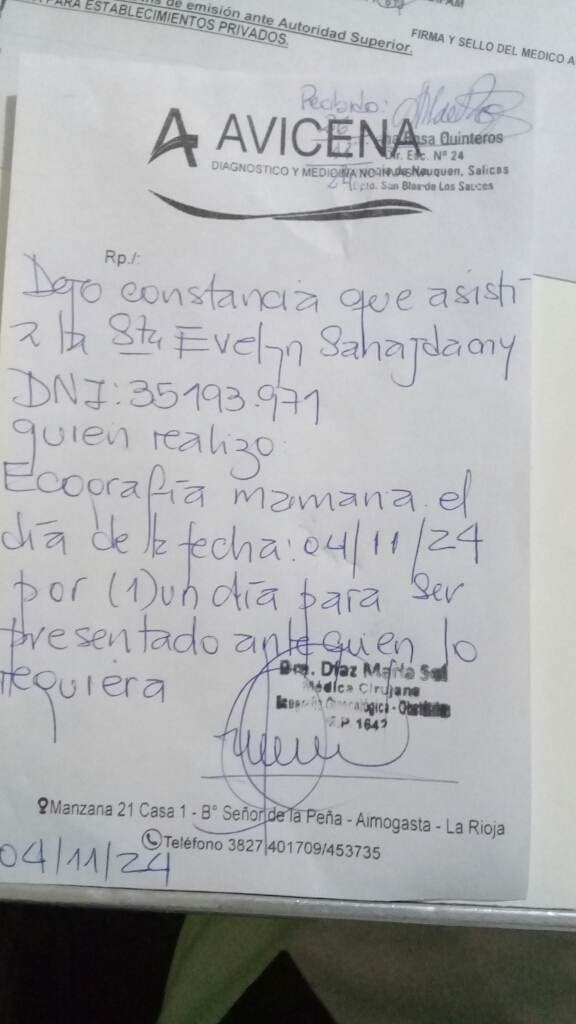 de emisión ante Autoridad Superior.
PARA ESTABLECIMIENTOS PRIVADOS.
FIRMA Y SELLO DEL MEDICO A
Recibido:
AVICENA
Rosa Quinteros
Dir. Esc. N° 24
DIAGNOSTICO Y MEDICINA NO INVASIVA
de Neuquen, Salicas
Dpto. San Blas de Los Sauces
Rp./:
Dejo constancia que asisti
a la Sta Evelyn
DNI: 35193.971
quien realizo
Ecografía mamaria el
día de la fecha: 04/11/24
por (1) un día para ser
presentado ante quien lo
requiera
Dra. Díaz María Sol
Médica Cirujana
Ginecológica - Obstétrica
M.P. 1642
Manzana 21 Casa 1 - B° Señor de la Peña - Aimogasta - La Rioja
Teléfono 3827 401709/453735
04/11/24